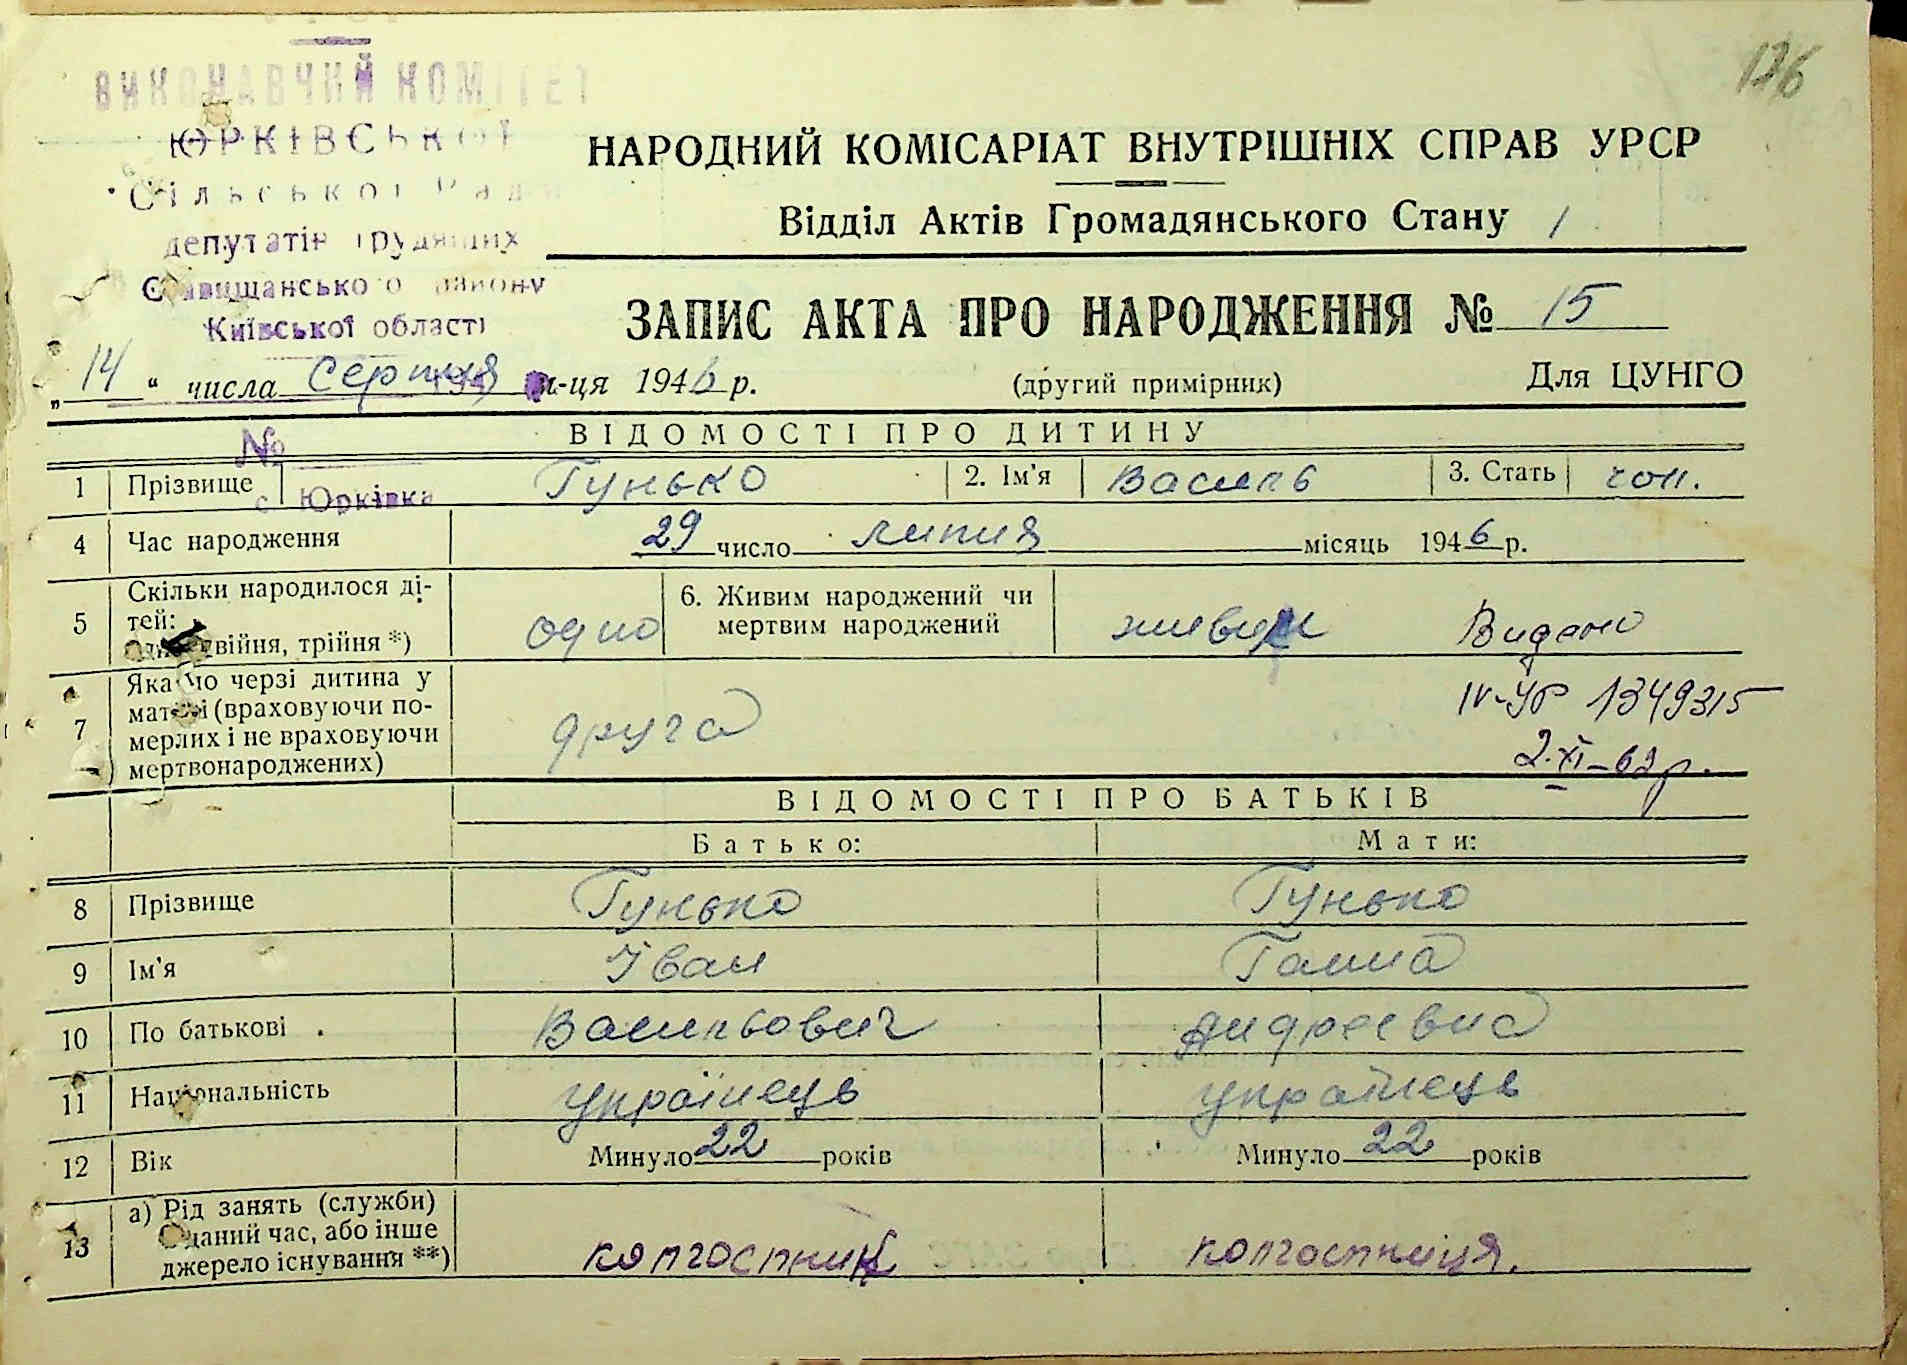 126
ВИКОНАВЧИЙ КОМІТЕТ
ЮРКІВСЬКОЇ
Сільської Ради
депутатів трудящих
Ставищанського району
Київської області
НАРОДНИЙ КОМІСАРІАТ ВНУТРІШНІХ СПРАВ УРСР
Відділ Актів Громадянського Стану
ЗАПИС АКТА ПРО НАРОДЖЕННЯ № 15
„ 14 “ числа Серпня м-ця 1946 р. (другий примірник) Для ЦУНГО
№
с. Юрківка
ВІДОМОСТІ ПРО ДИТИНУ
1 Прізвище Гунько 2. Ім'я Василь 3. Стать чол.
4 Час народження 29 число липня місяць 1946 р.
5 Скільки народилося ді-
тей:
одно, двійня, трійня *) одно
6. Живим народжений чи
мертвим народжений живим
Видано
IV-УР 1349315
2.XI-62р.
7 Яка по черзі дитина у
матері (враховуючи по-
мерлих і не враховуючи
мертвонароджених) друга
ВІДОМОСТІ ПРО БАТЬКІВ
Батько: Мати:
8 Прізвище Гунько Гунько
9 Ім'я Іван Ганна
10 По батькові Васильович Андреєвна
11 Національність українець українець
12 Вік Минуло 22 років Минуло 22 років
13 а) Рід занять (служби)
в даний час, або інше
джерело існування **) колгоспник колгоспниця.